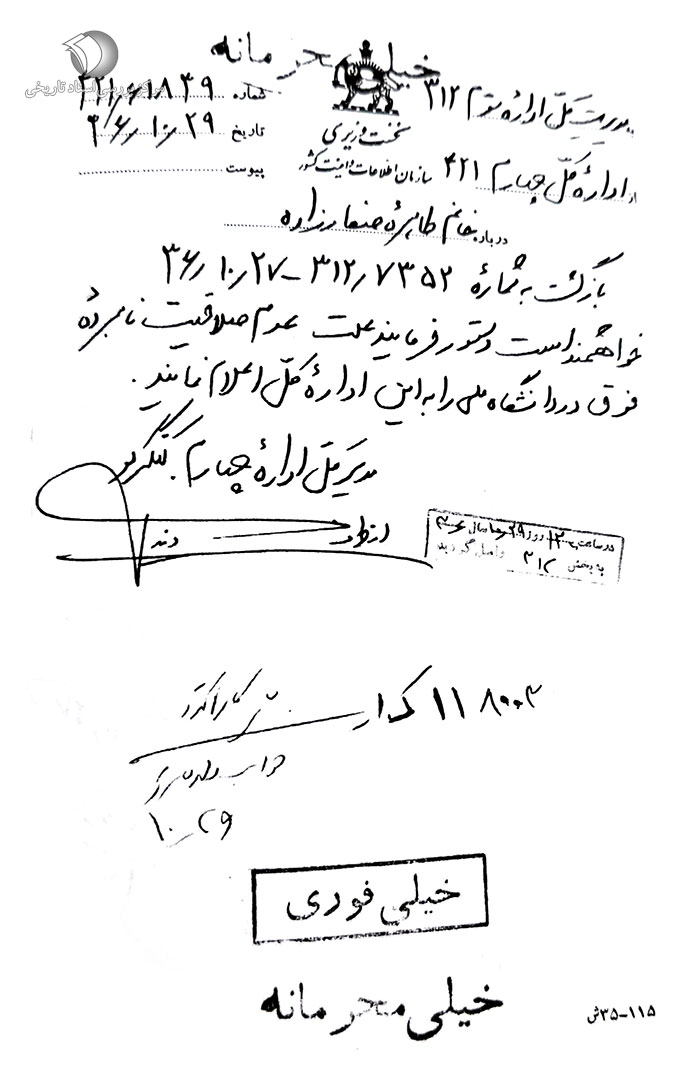 خیلی محرمانه
مرکز بررسی اسناد تاریخی
شماره ۴۲۱/۶۱۸۳۹
تاریخ ۳۶/۱۰/۲۹
پیوست
نخست وزیری
سازمان اطلاعات و امنیت کشور
مدیریت کل اداره سوم ۳۱۲
از اداره کل چهارم ۴۲۱
درباره خانم طاهره صفارزاده
بازگشت به شماره ۳۱۲/۷۳۵۲ - ۳۶/۱۰/۲۷
خواهشمند است دستور فرمایند علت عدم صلاحیت نامبرده
فوق در دانشگاه ملی را به این اداره کل اعلام نمایند.
مدیر کل اداره چهارم
در ساعت ۱۳ روز ۲۹ ماه سال
به بخش ۳۱۲ واصل گردید
۱۱۸۰۰۳
۱۰/۲۹
خیلی فوری
خیلی محرمانه
۱۱۵-۳۵ش